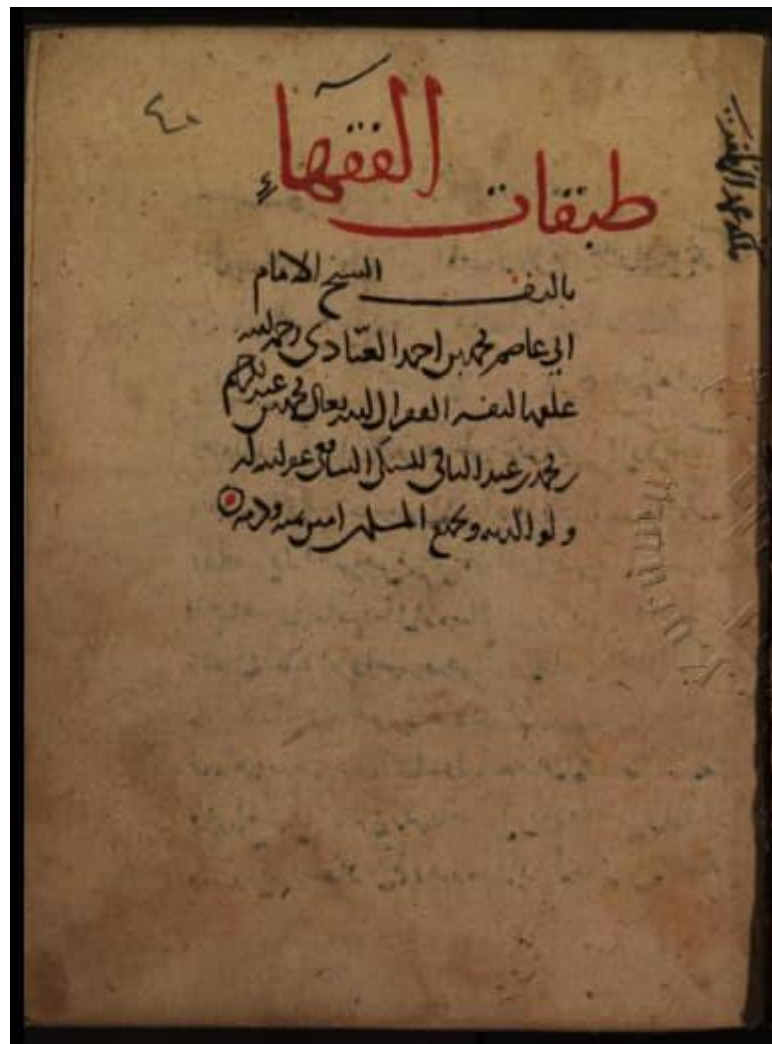 ٤٠
طبقات الفقهاء
تاليف الشيخ الامام
ابي عاصم محمد بن احمد العبّادي رحمه الله
علقها لنفسه الفقير الى الله تعالى محمد بن عبد الرحيم
بن محمد بن عبد الباقي السبكي الشافعي غفر الله له
ولوالديه ولجميع المسلمين امين بمنه وكرمه